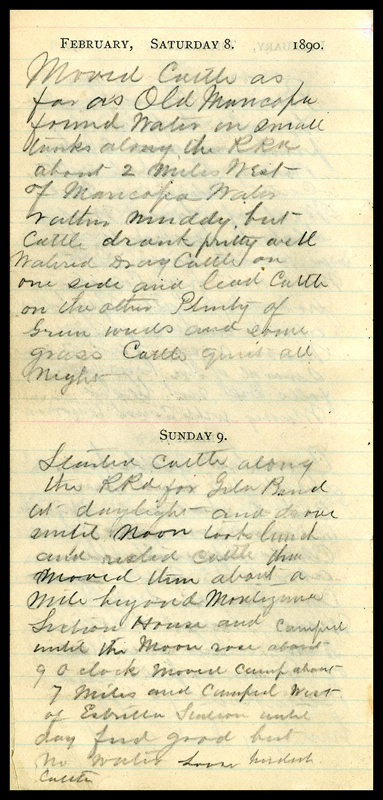 FEBRUARY, SATURDAY 8. 1890.
Moved Cattle as
far as Old Maricopa
found Water in small
tanks along the R R Rd
about 2 miles West
of Maricopa Water
rather muddy, but
Cattle drank pretty well
Watered Drag Cattle on
one side and lead Cattle
on the other Plenty of
Green weeds and some
grass Cattle quiet all
Night
SUNDAY 9.
Started cattle along
the R Rd for Gila Bend
at daylight and drove
until Noon took lunch
and rested cattle then
moved them about a
mile beyond Montezuma
Section House and Camped
until the Moon rose about
9 O clock Moved Camp about
7 Miles and Camped West
of Estrella Station until
day feed good but
No Water herded
Cattle